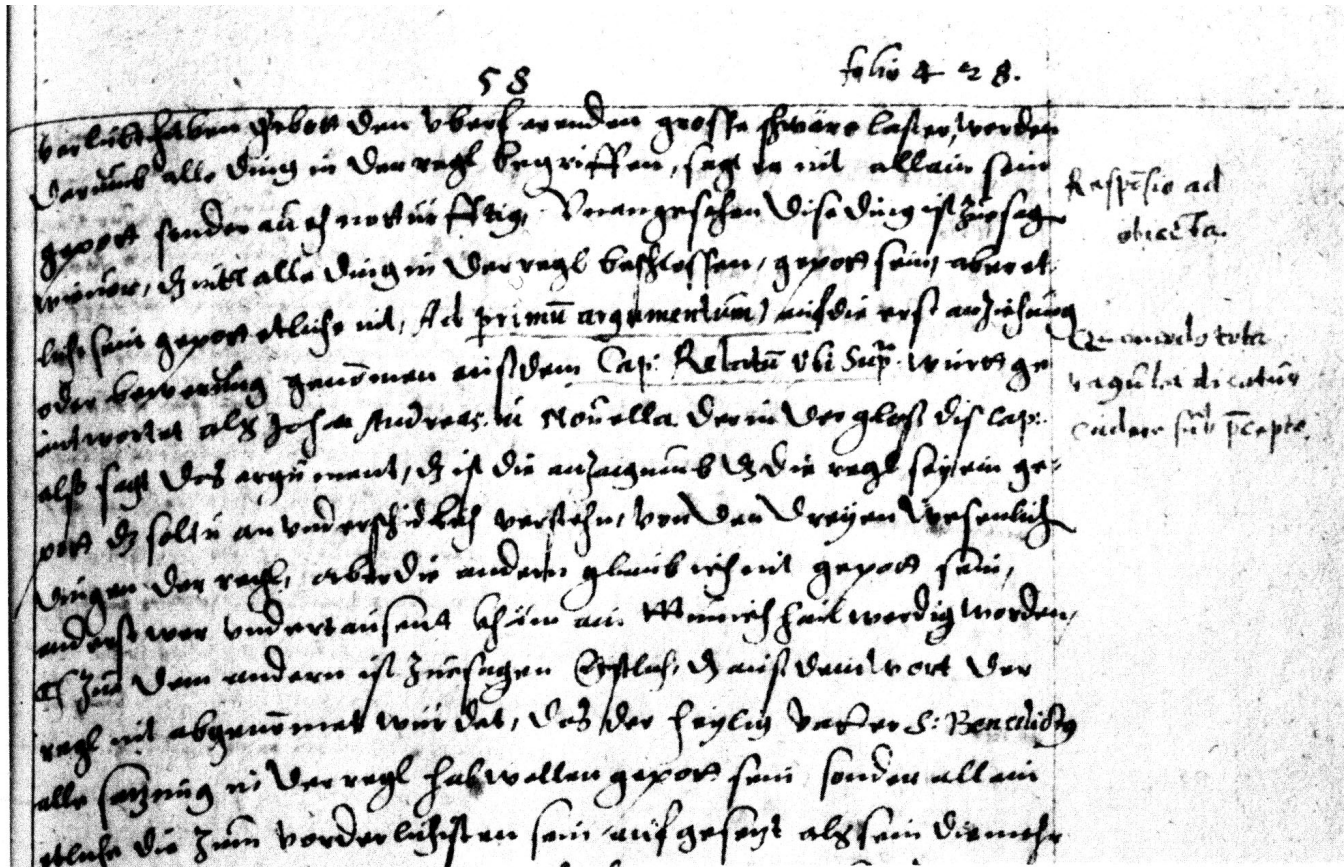 58
folio 428.
verlübt haben gebott den vberfarenden grosse schwäre laster, werden
darumb alle ding in der regl begriffen, sagt er nit allain sein
gepott sonder auch notturfftig, Vnangesehen dise ding ist zuesagen
wieuor, dz nitt alle ding in der regl beschlossen, gepott sein, aber et-
liche sein gepott etliche nit, Ad primū argumentum, auf die erst anziehung
oder bewerung genomen auß dem Cap: Relatū vbi Sup. württ ge
antwortet als Johan Andreas in Nouella der in der gloß dis Cap:
also sagt das argument, dz ist die anzaigung dz die regl sey ein ge-
pott dz soltu an vnderschidlich verstehn, von den dreyen wesenlichen
dingen der regl, aber die andern glaub ich nit gepott sein,
anderst wer vnder tausent khaum ain Münich hailwerdig worden,
Zu dem andern ist zuesagen Erstlich, dz auß dem wort der
regl nit abgenomen würdet, das der heylig vatter S: Benedictus
alle satzung in der regl hab wellen gepott sein sonder allain
etliche die zum vorderlichisten sein aufgesetzt als sein die mehr
Respōsio ad
obiecta.
Quomodo tota
regula dicatur
cadere sub p̄cepto.